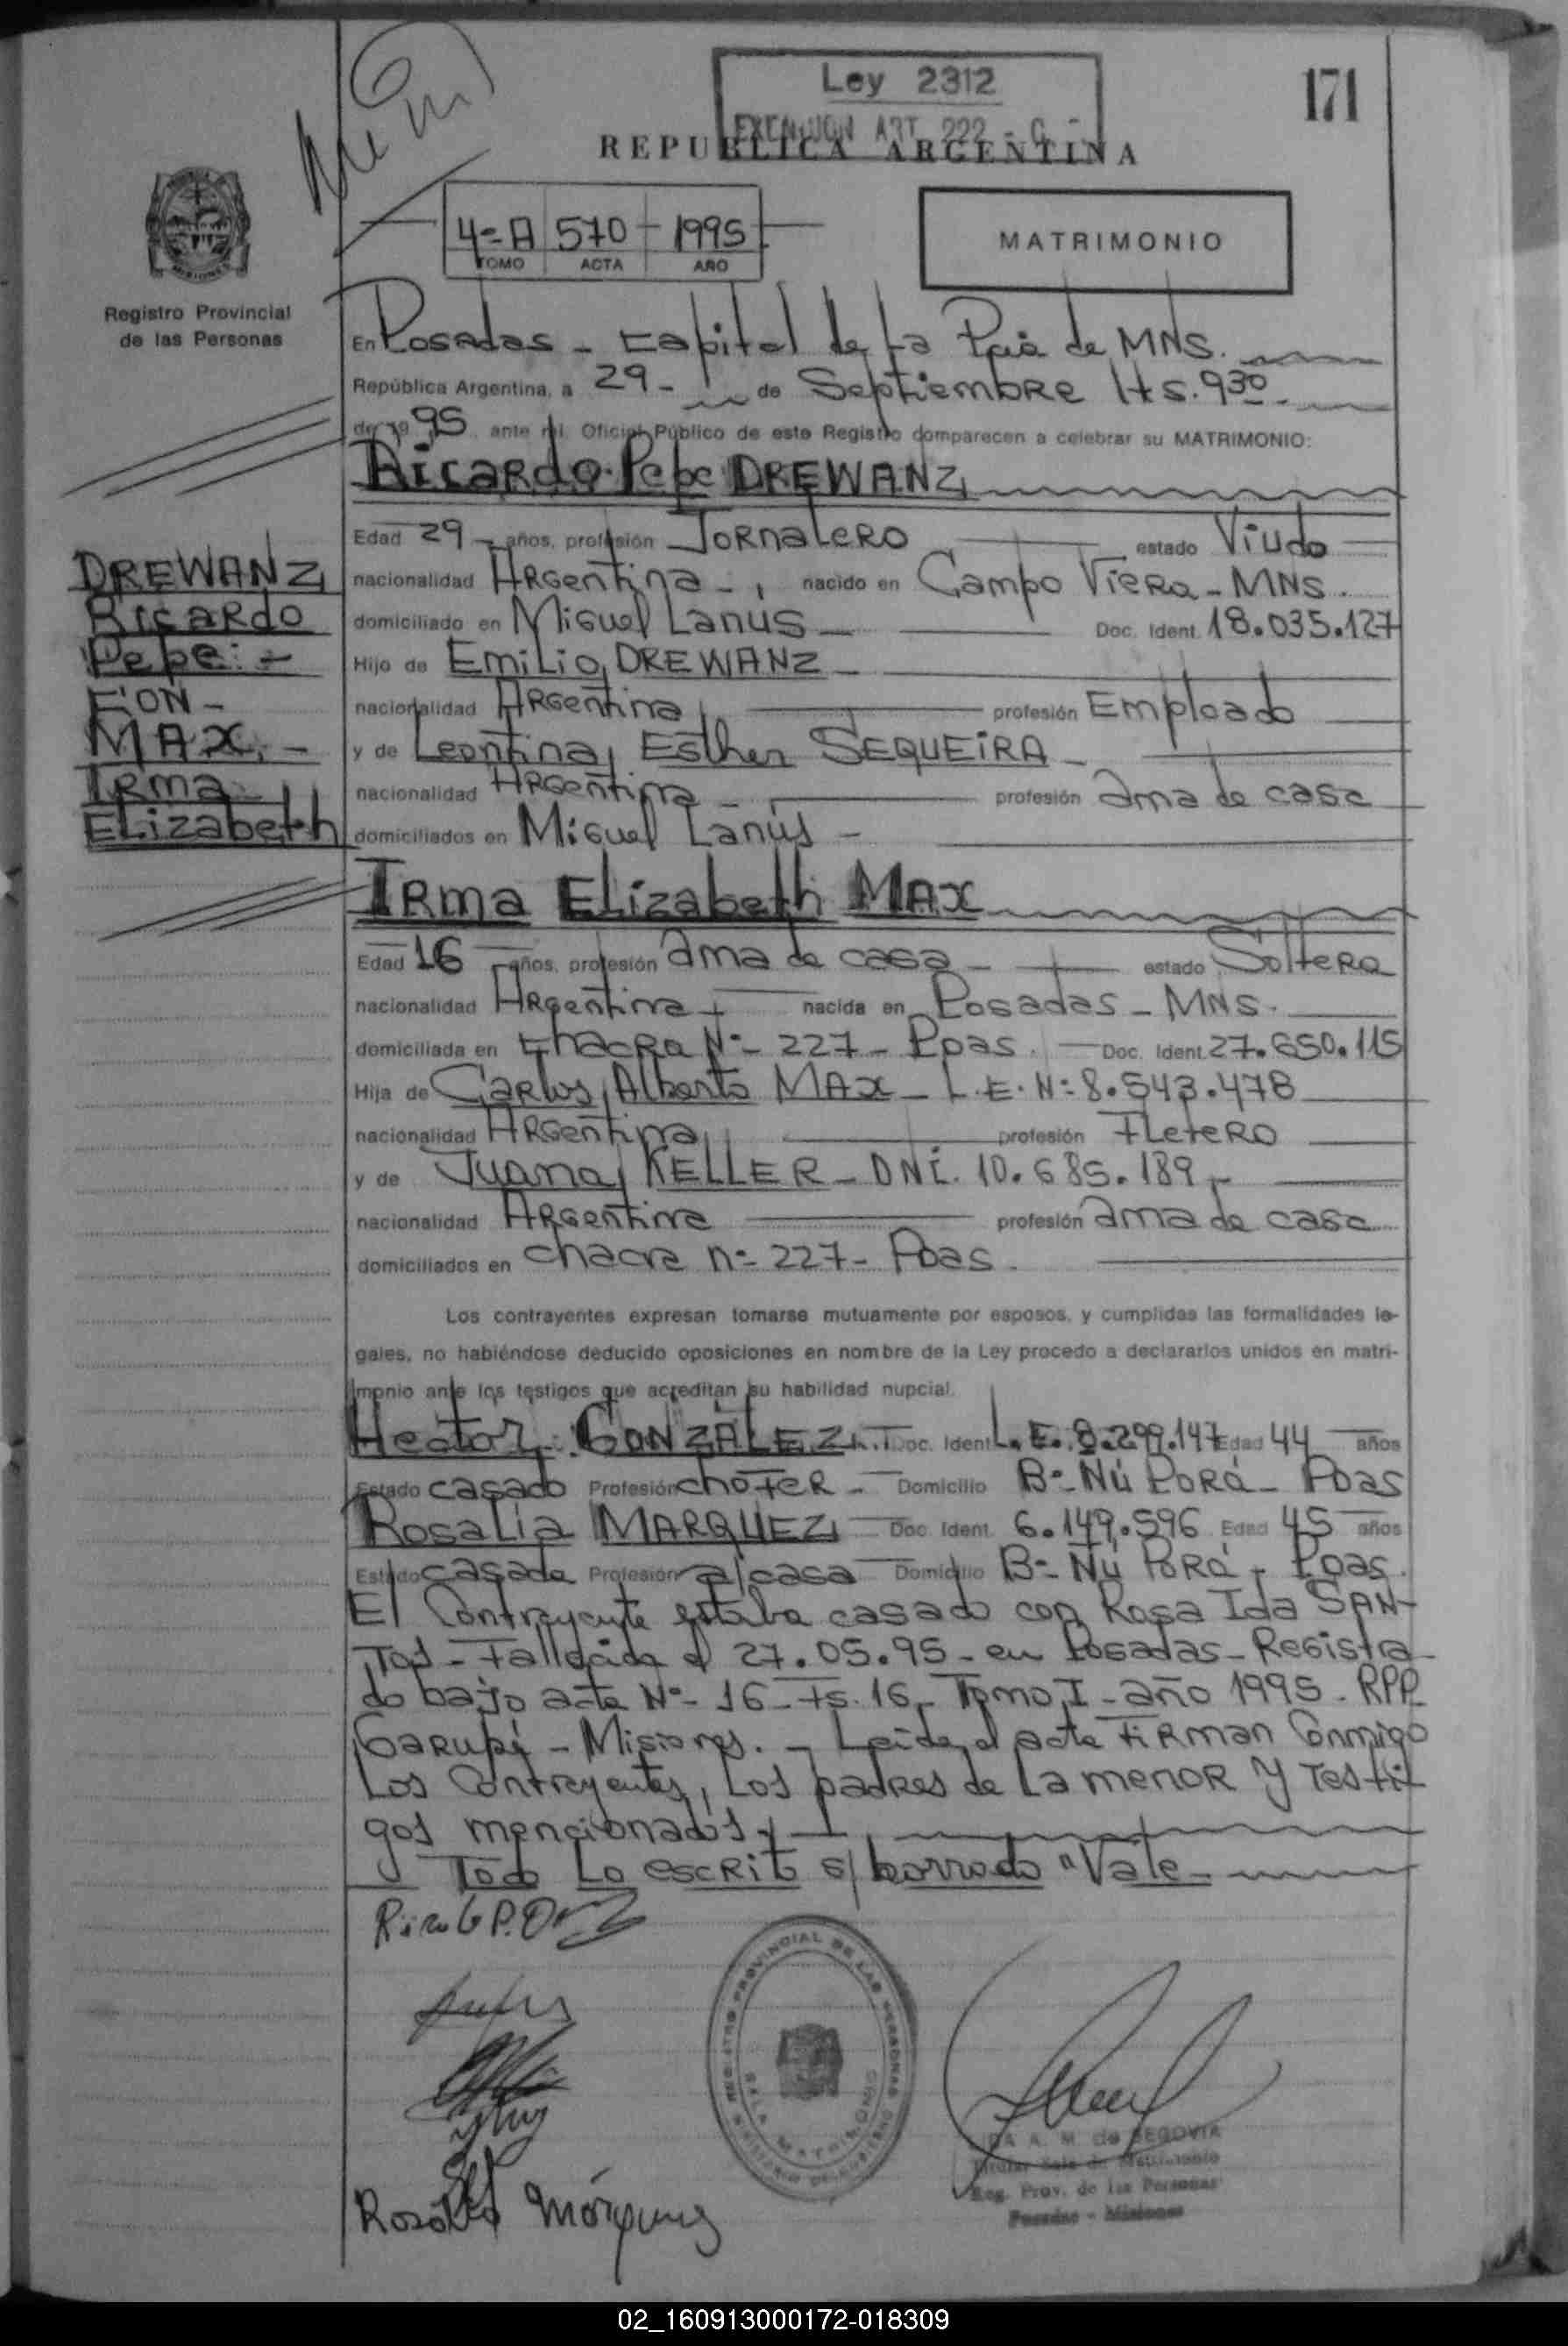 171
Ley 2312
EXENCION ART. 222 - C -
REPUBLICA ARGENTINA
4º A 570 - 1995
TOMO ACTA AÑO
MATRIMONIO
Registro Provincial
de las Personas
En Posadas - Capital de La Pcia de MNS.
República Argentina, a 29 - de Septiembre Hs. 9 30
de 1995 ante mí, Oficial Público de este Registro comparecen a celebrar su MATRIMONIO:
Ricardo Pepe DREWANZ
Edad 29 - años, profesión Jornalero estado Viudo
nacionalidad Argentina -, nacido en Campo Viera - MNS.
domiciliado en Miguel Lanus - Doc. Ident. 18.035.127
Hijo de Emilio, DREWANZ -
nacionalidad Argentina profesión Empleado
y de Leontina, Esther SEQUEIRA -
nacionalidad Argentina - profesión Ama de casa
domiciliados en Miguel Lanús -
DREWANZ
Ricardo
Pepe: -
CON -
MAX. -
Irma
Elizabeth
Irma Elizabeth MAX
Edad 16 años, profesión Ama de casa - estado Soltera
nacionalidad Argentina nacida en Posadas - MNS.
domiciliada en Chacra Nº - 227 - Pdas. Doc. Ident. 27.650.115
Hija de Carlos, Alberto MAX - L.E. Nº 8.543.478
nacionalidad Argentina profesión Fletero
y de Juana, KELLER - DNI. 10.685.189 -
nacionalidad Argentina profesión Ama de casa
domiciliados en Chacra nº - 227 - Pdas.
Los contrayentes expresan tomarse mutuamente por esposos, y cumplidas las formalidades le-
gales, no habiéndose deducido oposiciones en nombre de la Ley procedo a declararlos unidos en matri-
monio ante los testigos que acreditan su habilidad nupcial.
Hector GONZALEZ Doc. Ident. L.E. 8.299.147 Edad 44 años
Estado casado Profesión chofer - Domicilio Bº - Ñú Porá - Pdas
Rosalia MARQUEZ Doc. Ident. 6.149.596 Edad 45 años
Estado casada Profesión a/casa Domicilio Bº - Ñú Porá - Pdas.
El Contrayente estaba casado con Rosa Ida SAN-
TOS - Fallecida el 27.05.95 - en Posadas - Registra-
do bajo acta Nº - 16 - Fs. 16 - Tomo I - año 1995 - RPP
Garupá - Misiones. - Leida el acta firman Conmigo
Los Contrayentes, Los padres de La menor y Testi-
gos mencionados. -
Todo Lo escrito s/ borrado "Vale -
REGISTRO PROVINCIAL DE LAS PERSONAS
SALA MATRIMONIOS
MINISTERIO DE GOBIERNO
A. M. de SEGOVIA
Titular Sala de Matrimonio
Reg. Prov. de las Personas
Posadas - Misiones
Rosalia Márquez
02_160913000172-018309